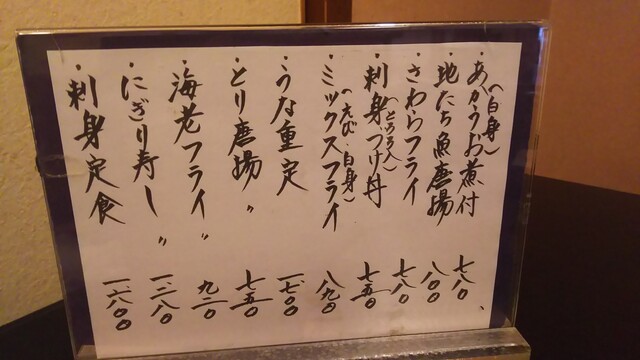 (白身)
・あかうお煮付 七八〇、
・地たち魚唐揚 八〇〇
・さわらフライ 七八〇
(とろろ入)
・刺身つけ丼 七五〇
(えび・白身)
・ミックスフライ 八九〇
・うな重定 一、七〇〇
・とり唐揚〃 七五〇
・海老フライ〃 九二〇
・にぎり寿し〃 一、二八〇
・刺身定食 一、八〇〇